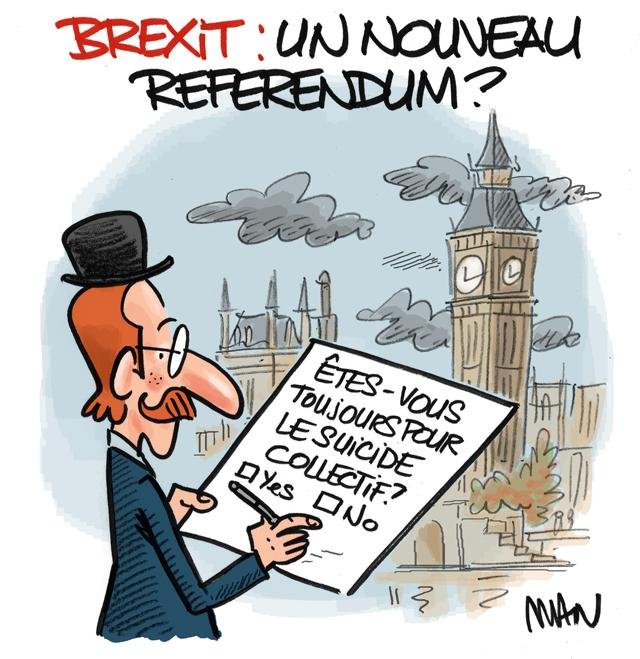 BREXIT : UN NOUVEAU
REFERENDUM ?
ÊTES-VOUS
TOUJOURS POUR
LE SUICIDE
COLLECTIF ?
□ Yes □ No
MAN